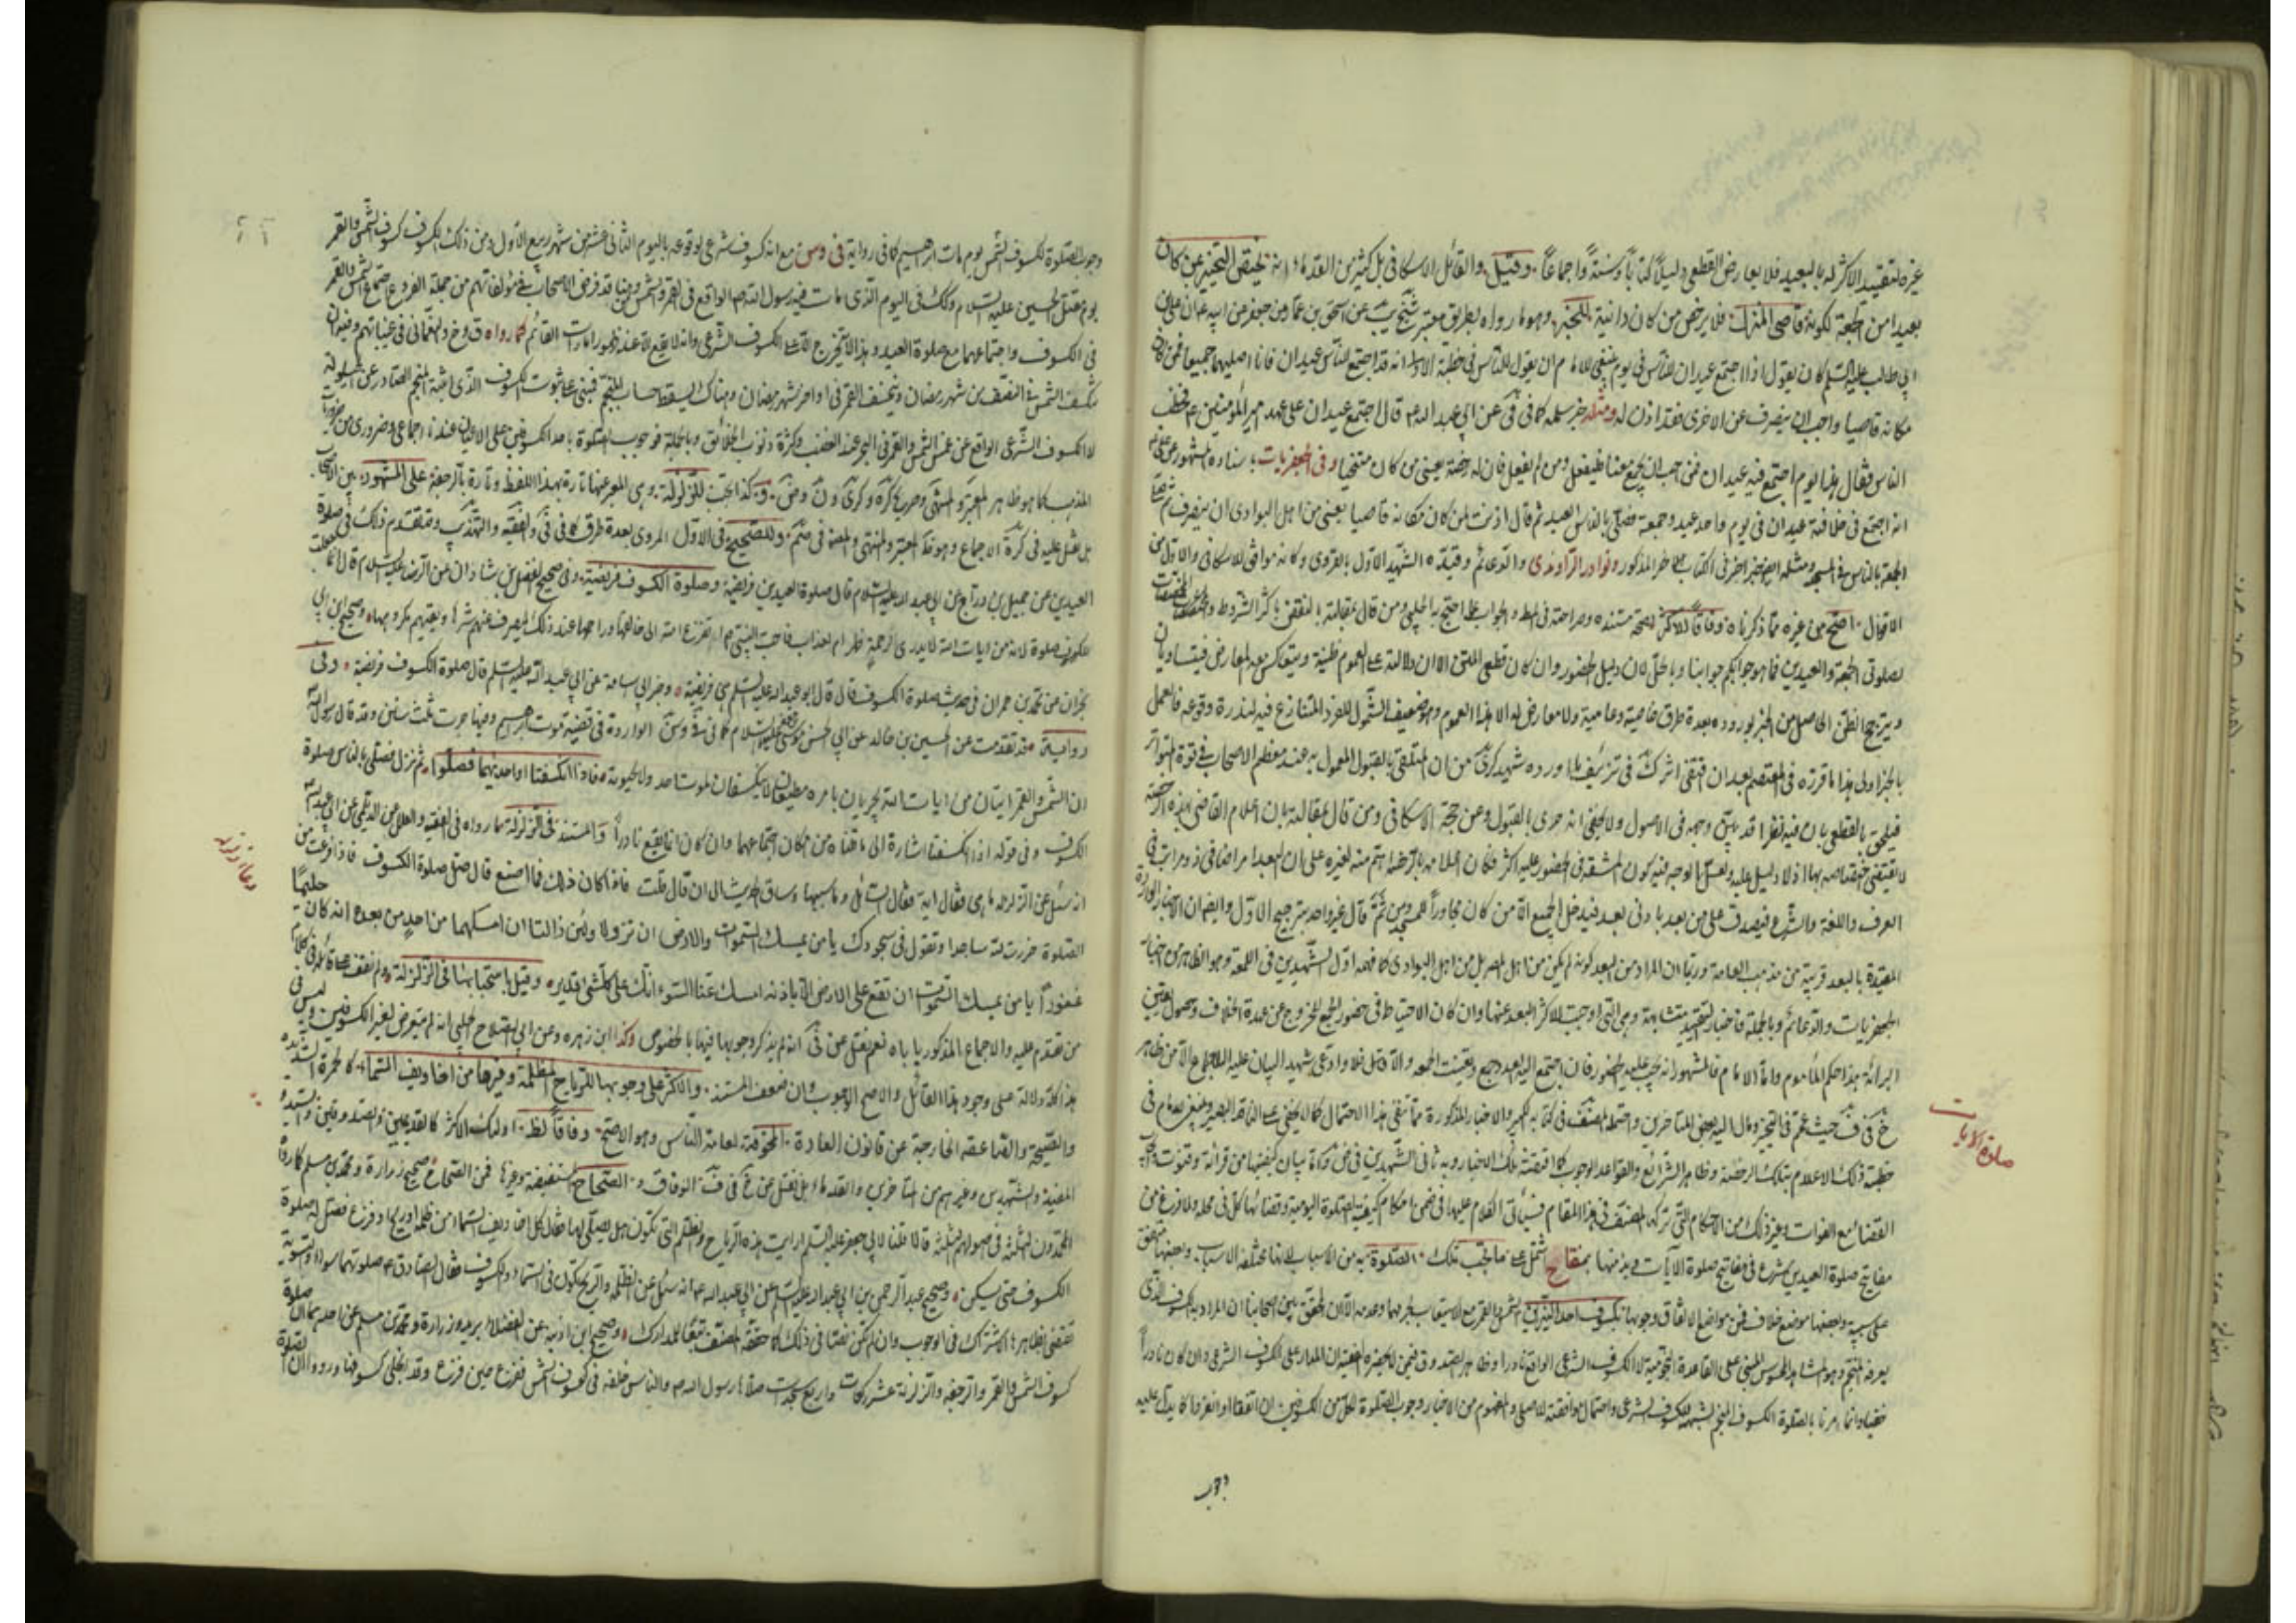 غيره لتقييد الاكثر له بالبعيد فلا يعارض القطعي دليلاً كتاباً وسنة واجماعاً وقيل والقائل الاسكافي بل كثير من القدماء انه يختص التخيير بمن كان
بعيدا من الجمعة لكونه قاصي المنزل فلا يرخص من كان دانية للخبر وهو ما رواه بطريق معتبر شيخ يب عن اسحق بن عمار عن جعفر عن ابيه ان علي بن
ابي طالب عليه السلم كان يقول اذا اجتمع عيدان للناس في يوم ينبغي للامام ان يقول للناس في خطبة الاولى انه قد اجتمع للناس عيدان فانا اصليهما جميعا فمن كان
مكانه قاصيا واحب ان ينصرف عن الاخرى فقد اذن له ومثله خبر سلمه كما في في عن ابي عبد الله ع قال اجتمع عيدان على عهد امير المؤمنين ع فخطب
الناس فقال هذا يوم اجتمع فيه عيدان فمن احب ان يجمع معنا فليفعل ومن لم يفعل فان له رخصة يعني من كان متنحيا وفي الجعفريات باسناده المشهور عن علي
انه اجتمع في خلافته عيدان في يوم واحد عيد وجمعة فصلى بالناس العيد ثم قال اذنت لمن كان مكانه قاصيا يعني من اهل البوادي ان ينصرف ثم صلى
الجمعة بالناس في المسجد ومثله ايضا خبر اخر في الكتاب المذكور ونوادر الراوندي والدعائم وقيده الشهيد الاول بالقروي وكانه موافق للاسكافي والاول من
الاقوال اصح من غيره مما ذكرناه وفاقاً للاكثر لصحة مستنده وصراحته في المط والجواب عما احتج به الحلبي ومن قال بمقالته
لصلوتي الجمعة والعيدين فما هو جوابكم جوابنا وبالحل لان دليل الحضور وان كان قطعي المتن الا ان دلالته على العموم ظنية وينعكس معه المعارض فيتساويان
ويترجح الظن الحاصل من الخبر بوروده بعدة طرق خاصية وعامية ولا معارض له الا هذا العموم وهو ضعيف الشمول للفرد المتنازع فيه لندرة وقوعه فالعمل
بالخبر اولى هذا ما قرره في المعتصم
فيلحق بالقطعي بان فيه نظرا قد بين وجهه في الاصول ولا يخفى انه حري بالقبول وعن حجة الاسكافي ومن قال بمقالته بان اعلام القاضي بهذه الرخصة
لا يقتضي اختصاصه بها اذ لا دليل عليه ولعل الوجه فيه كون المشقة في الحضور عليه اكثر فكان اعلامه بالرخصة اهم منه لغيره على ان البعد امر اضافي ذو مراتب في
العرف واللغة والشرع فيصدق على من بعد بادنى بعد فيدخل الجميع الا من كان مجاوراً للمسجد ومن ثم قال غير واحد بترجيح الاول وايضا ان الاخبار الواردة
المقيدة بالبعد قريبة من مذهب العامة وربما ان المراد من البعد كونه لم يكن من اهل المصر بل من اهل البوادي كما فهمه اول الشهيدين في اللمعة وهو الظاهر من اخبار
الجعفريات والدعائم وبالجملة فاخبار التقييد متشابهة وهي التي اوجبت للاكثر البعد عنها وان كان الاحتياط في حضور الجميع للخروج عن عهدة الخلاف وحصول يقين
البرائة هذا حكم المأموم واما الامام فالمشهور انه يجب عليه الحضور فان اجتمع اليه العدد جمع وتعينت الجمعه والا
حيث عمم في التخيير ومال اليه بعض المتاخرين واحتمله المصنف في كتابه الكبير والاخبار المذكورة مما تنفي هذا الاحتمال كما لا يخفى على الناقد البصير وينبغي للامام في
خطبته ذلك الاعلام بتلك الرخصة وظاهر الشرائع والقواعد الوجوب كما اقتضته تلك الاخبار وبه
القضاء مع الفوات وغير ذلك من الاحكام التي تركها المصنف في هذا المقام فسيأتي الكلام عليها في ضمن احكام كيفية الصلوة اليومية وقضائها كل في محله ولما فرغ من
مفاتيح صلوة العيدين شرع في مفاتيح صلوة الآيات وبدء منها بمفتاح يشتمل على ما يجب تلك الصلوة به من الاسباب لانها مختلفه الاسباب وبعضها متفق
على سببيته وبعضها موضع خلاف فمن مواضع الاتفاق وجوبها بكسوف احد النيرين الشمس والقمر مع الاستيعاب لجرمهما وعدمه الا ان المحقق بين اصحابنا ان المراد به الكسوف الذي
يعرفه المنجم وهو المشاهد المحسوس المبني على القاعدة النجومية لا الكسوف الشرعي الواقع نادرا وظاهر الصدوق فيمن لا يحضره الفقيه ان المدار على الكسوف الشرعي وان كان نادراً
خفيا وانما امرنا بالصلوة الكسوف المنجم لشبهه بالكسوف الشرعي واحتمال موافقته للاصل والمفهوم من الاخبار وجوب الصلوة لكل من الكسوفين ان اتفقا او افترقا كما يدل عليه
وجوب
صلوة الايات
وجوب الصلوة لكسوف الشمس يوم مات ابرهيم كما في رواية في وسن مع انه كسوف شرعي لوقوعه باليوم الثاني عشر من شهر ربيع الاول ومن ذلك الكسوف كسوف الشمس والقمر
يوم قتل الحسين عليه السلام وذلك في اليوم الذي مات فيه رسول الله ص الواقع في القمر والشمس ومن هنا قد فرض الاصحاب في مؤلفاتهم من جملة الفروع اجتماع الشمس والقمر
في الكسوف واجتماعهما مع صلوة العيد وهذا لا يتخرج الا على الكسوف الشرعي وانه لا يقع الا عند ظهور امارات القائم كما رواه ق وخ والنعماني في غيباتهم وفيه ان
تنكسف الشمس في النصف من شهر رمضان وينخسف القمر في اواخر شهر رمضان وهناك يسقط حساب المنجم فيبنى على ثبوت الكسوف الذي اثبته المنجم الصادر عن الحيلولة
لا الكسوف الشرعي الواقع عن غمس الشمس والقمر في البحر عند الغضب وكثرة ذنوب الخلائق وبالجملة فوجوب الصلوة باحد الكسوفين على الاعيان عندنا اجماعي وضروري من ضروريات
المذهب كما هو ظاهر المعتبر والمنتهى وكذا تجب للزلزلة وهي المعبر عنها تارة بهذا اللفظ وتارة بالرجفة على المشهور بين الاصحاب
بل نقل عليه في كرة الاجماع وهو ظ المعتبر والمنتهى وللصحيح في الاول المروي بعدة طرق كما في في والفقيه والتهذيب وقد تقدم ذلك في صلوة
العيدين عن جميل بن دراج عن ابي عبد الله عليه السلام قال صلوة العيدين فريضة وصلوة الكسوف فريضة وفي صحيح الفضل بن شاذان عن الرضا عليه السلام قال انما جعلت
للكسوف صلوة لانه من ايات الله لا يدري الرحمة ظهرام لعذاب فاحب النبي ص ان تفزع امته الى خالقها وراحمها عند ذلك ليصرف عنهم شرها ويقيهم مكروهها وصحيح ابن ابي
نجران عن محمد بن حمران في حديث صلوة الكسوف قال قال ابو عبد الله عليه السلم هي فريضة وخبر ابي اسامة عن ابي عبد الله عليه السلم قال صلوة الكسوف فريضة وفي
رواية قد تقدمت عن الحسين بن خالد عن ابي الحسن موسى عليه السلام كما في في وسن الواردة في قضية موت ابرهيم وفيها جرت ثلث سنن وقد قال رسول الله
ان الشمس والقمر ايتان من ايات الله تجريان بامره مطيعان لا ينكسفان لموت احد ولا لحيوته فاذا انكسفتا او احديهما فصلوا ثم نزل فصلى بالناس صلوة
الكسوف وفي قوله اذا انكسفتا اشارة الى ما قلناه من امكان اجتماعهما وان كان انما يقع نادراً والمستند في الزلزلة ما رواه في الفقيه والعلل عن الديلمي عن ابي عبد الله
انه سئل عن الزلزلة ما هي فقال اية فقال السائل وما سببها وساق الحديث الى ان قال قلت فاذا كان ذلك فما اصنع قال صل صلوة الكسوف فاذا فرغت من
الصلوة خررت لله ساجدا وتقول في سجودك يا من يمسك السموات والارض ان تزولا ولئن زالتا ان امسكهما من احد من بعده انه كان حليما
غفوراً يا من يمسك السموات ان تقع على الارض الا باذنه امسك عنا السوء انك على كل شيء قدير وقيل باستحبابها في الزلزلة ولم نقف على قائله في كلام
من تقدم عليه والاجماع المذكور ياباه نعم نقل عن انه لم يذكر وجوبها فيها بالخصوص وكذا ابن زهره وعن ابي الصلاح الحلبي انه لم يتعرض لغير الكسوفين وليس في
هذا كله دلالة على وجود هذا القائل والاصح الوجوب وان ضعف المستند والاكثر على وجوبها للرياح المظلمة وغيرها من اخاويف السماء كالحمرة الشديده
والصيحة والصاعقه الخارجة عن قانون العادة المخوفة لعامة الناس وهو الاصح وفاقاً لظ اولئك الاكثر كالقديمين والصدوقين والشيخ
المفيد والشهيدين وغيرهم من المتاخرين والقدماء بل نقل عن الوفاق و الصحاح المستفيضة وغيرها فمن الصحاح صحيح زرارة ومحمد بن مسلم كما رواه
المحمدون الثلثة في اصولهم الثلثة قالا قلنا لابي جعفر عليه السلم ارايت هذه الرياح والظلم التي تكون هل يصلى لها فقال كل اخاويف السماء من ظلمة او ريح او فزع فصل له صلوة
الكسوف حتى يسكن وصحيح عبد الرحمن بن ابي عبد الله عليه السلم عن ابي عبد الله ع انه سئل عن الظلمة والريح تكون في السماء والكسوف فقال الصادق ع صلوتهما سواء والتسوية
تقتضي بظاهرها الاشتراك في الوجوب وان لم تكن نصا في ذلك كما حققه المصنف تبعا للمدارك وصحيح ابن اذينة عن الفضلاء بريد وزرارة ومحمد بن مسلم عن احدهما ان صلوة
كسوف الشمس والقمر والرجفة والزلزلة عشر ركعات واربع سجدات صلاها رسول الله ص والناس خلفه في كسوف الشمس ففرغ حين فرغ وقد انجلى كسوفها ورووا ان الصلوة
دعاء زلزله